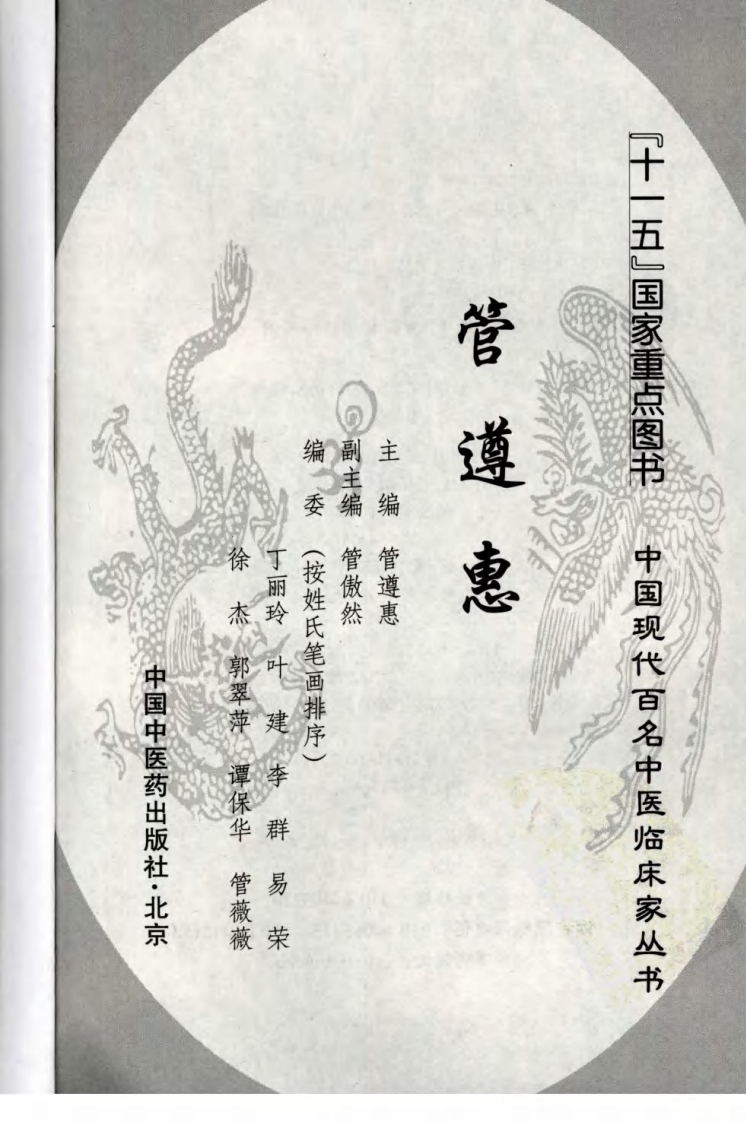 『十一五』国家重点图书 中国现代百名中医临床家丛书
管遵惠
主 编 管遵惠
副主编 管傲然
编 委 (按姓氏笔画排序)
丁丽玲 叶 建 李 群 易 荣
徐 杰 郭翠萍 谭保华 管薇薇
中国中医药出版社·北京